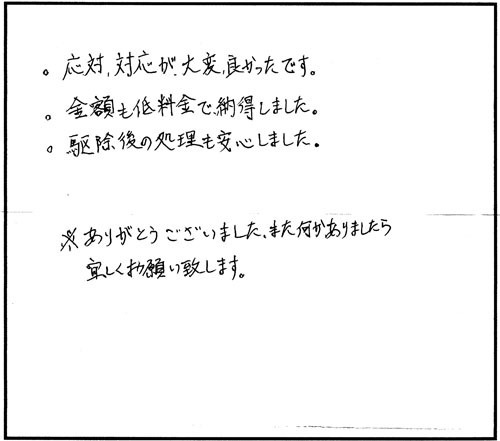 。応対,対応が、大変,良かったです。
。金額も低料金で納得しました。
。駆除後の処理も安心しました。
※ありがとうございました、また何かありましたら
宜しくお願い致します。